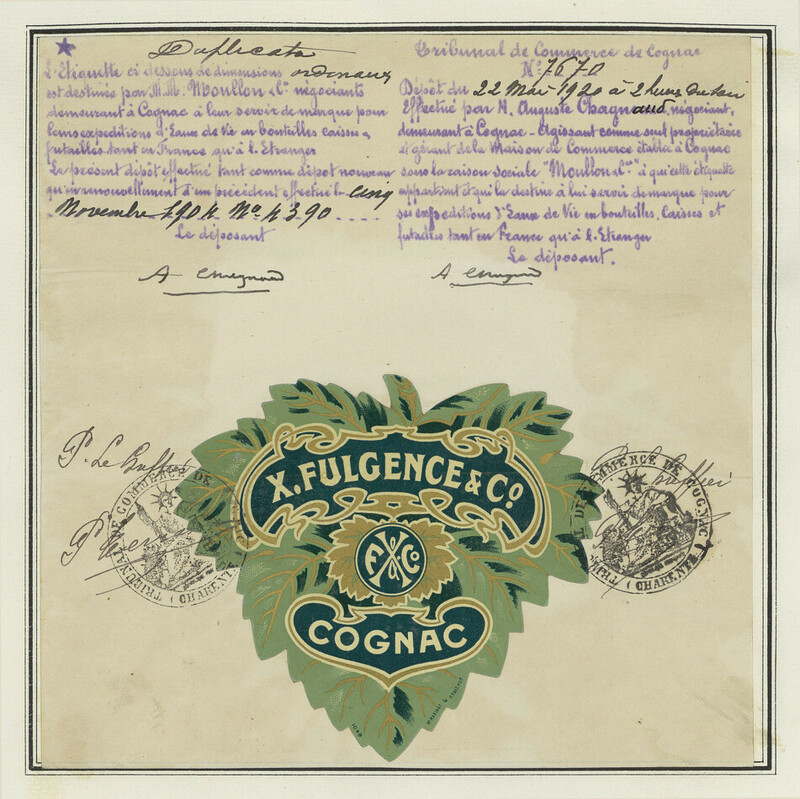 Duplicata
L'Etiquette ci dessous de dimensions ordinaires
est destinée par M.M. Moullon & Cie négociants
demeurant à Cognac à leur servir de marque pour
leurs expéditions d'Eaux de Vie en bouteilles caisses &
futailles tant en France qu'à l'Etranger
Le présent dépôt effectué tant comme dépot nouveau
qu'en renouvellement d'un précédent effectué le cinq
Novembre 1904 No 4390
Le déposant
Tribunal de Commerce de Cognac
No 7670
Dépôt du 22 Mai 1920 à 2 heures du soir
Effectué par M. Auguste Chagnaud, négociant,
demeurant à Cognac - Agissant comme seul propriétaire
et gérant de la Maison de Commerce établie à Cognac
sous la raison sociale "Moullon & Cie" à qui cette étiquette
appartient et qui la destine à lui servir de marque pour
ses expéditions d'Eaux de Vie en bouteilles, caisses et
futailles tant en France qu'à l'Etranger
Le déposant.
X. FULGENCE & Co
F X & Co
COGNAC
TRIBUNAL DE COMMERCE DE COGNAC
(CHARENTE)
TRIBUNAL DE COMMERCE DE COGNAC
(CHARENTE)